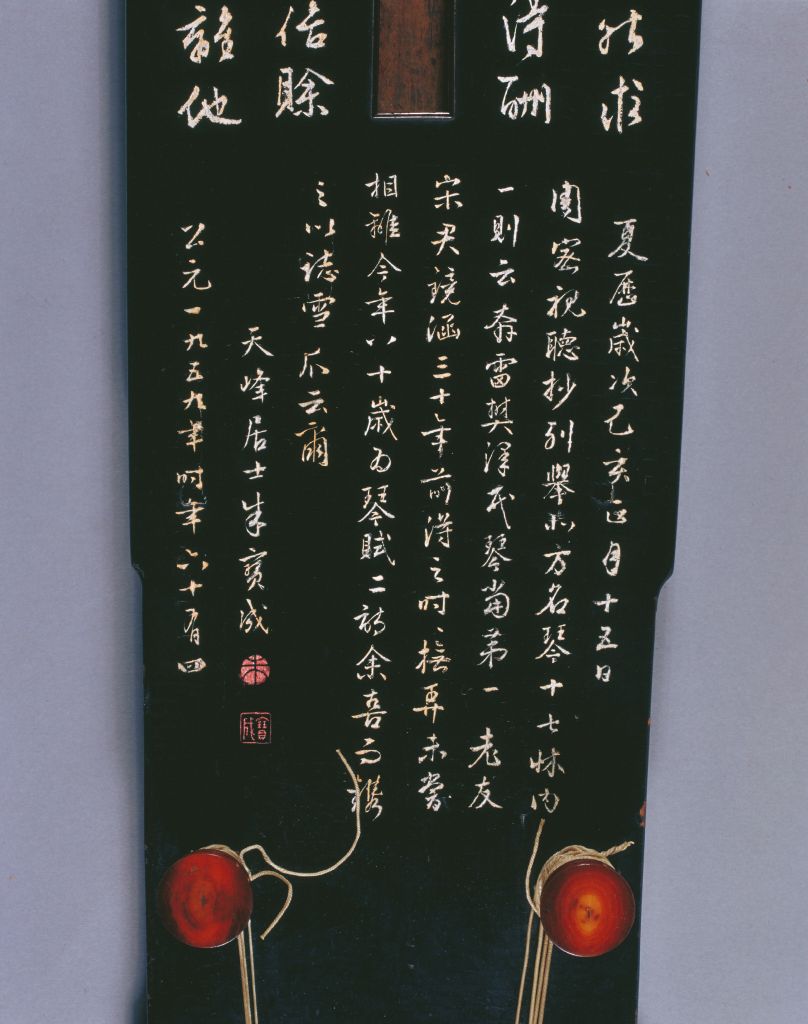 求
得酬
賒
他
夏歷歲次己亥正月十五日
周密視聽抄列舉北方名琴十七牀內
一則云奔雷樊澤民琴當第一 老友
宋君鏡涵三十年前得之時〻撫弄未嘗
相離今年八十歲為琴賦二詩余喜而鐫
之以誌雪爪云爾
天峰居士朱寶成
朱
寶成
公元一九五九年時年六十有四